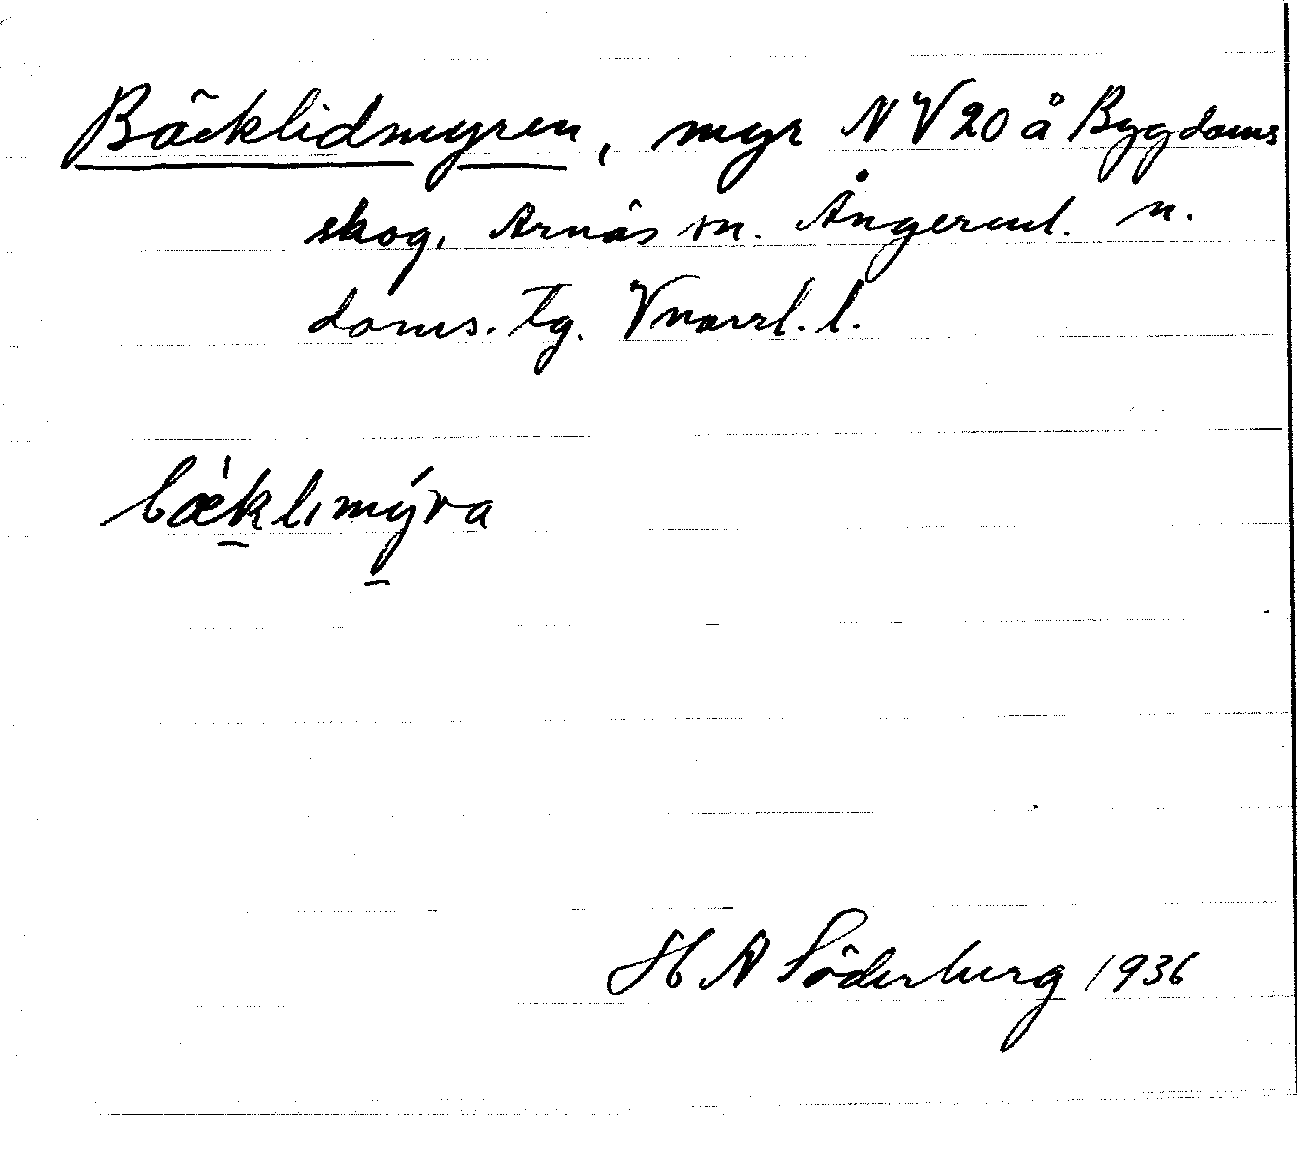 Bäcklidmyren, myr NV 20 å Bygdoms
skog, Arnäs sn. Ångerml. n.
doms. tg. Vnorrl. l.
bæ̀klımýra
H A Söderberg 1936